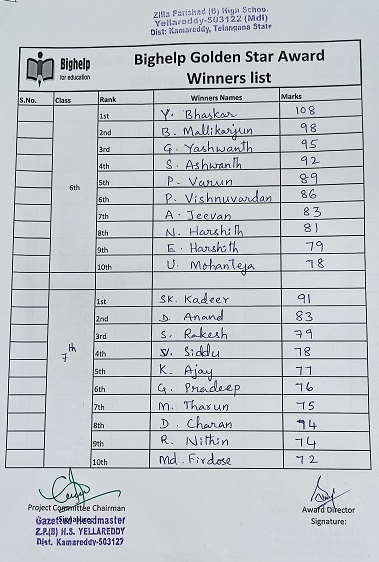 Zilla Parishad (B) High School
Yellareddy-503122 (Mdl)
Dist: Kamareddy, Telangana State
Bighelp
for education
Bighelp Golden Star Award
Winners list
S.No. Class Rank Winners Names Marks
6th
1st Y. Bhaskar 108
2nd B. Mallikarjun 98
3rd G. Yashwanth 95
4th S. Ashwanth 92
5th P. Varun 89
6th P. Vishnuvardan 86
7th A. Jeevan 83
8th N. Harshith 81
9th E. Harshith 79
10th U. MohanTeja 78
7th
1st SK. Kadeer 91
2nd D. Anand 83
3rd S. Rakesh 79
4th Siddu 78
5th K. Ajay 77
6th G. Pradeep 76
7th M. Tharun 75
8th D. Charan 74
9th R. Nithin 74
10th Md. Firdose 72
Project Committee Chairman
Signature:
Gazetted Headmaster
Z.P.(B) H.S. YELLAREDDY
Dist. Kamareddy-503122
Award Director
Signature: